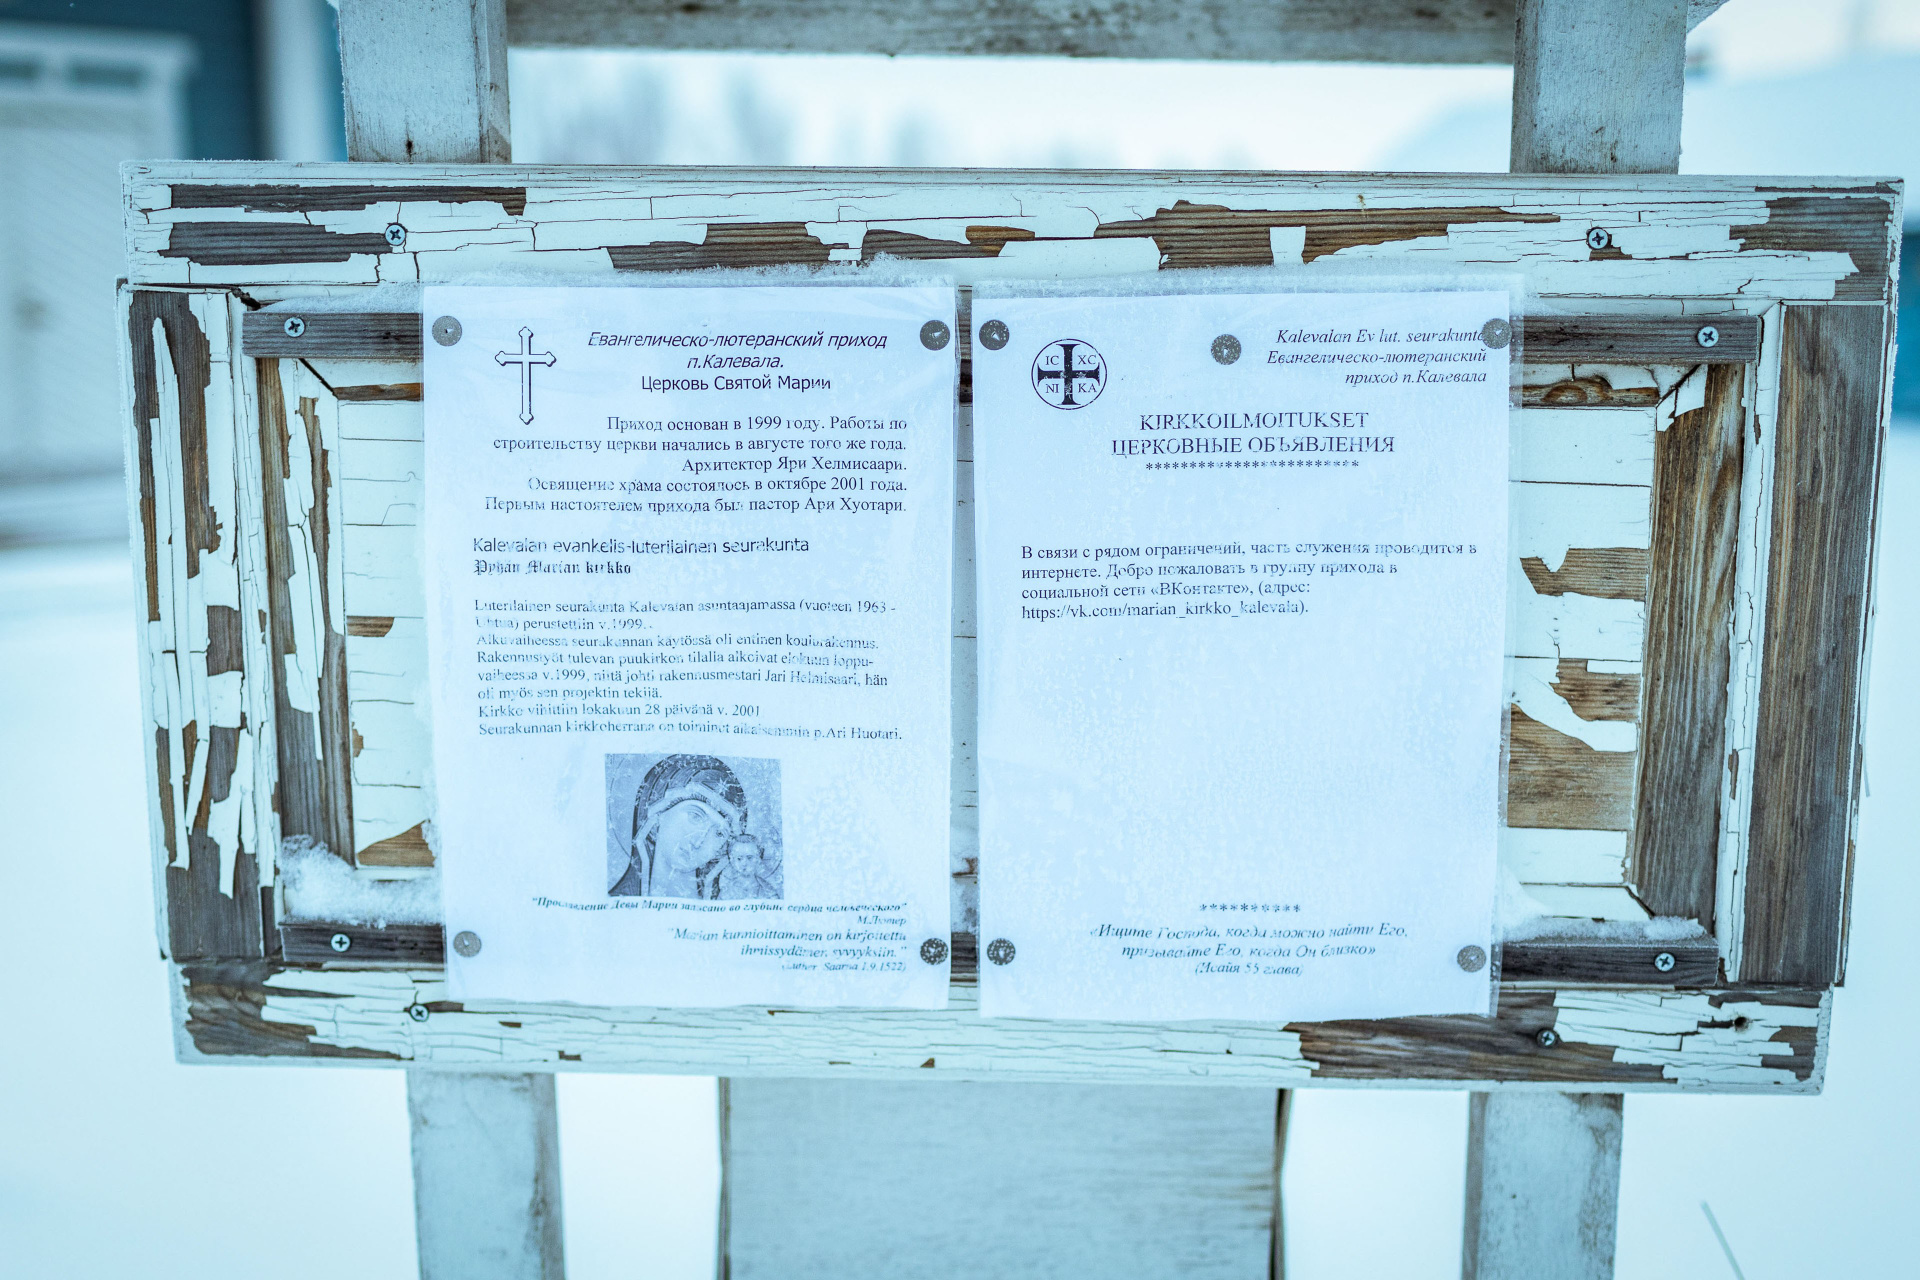 Евангелическо-лютеранский приход
п.Калевала.
Церковь Святой Марии
Приход основан в 1999 году. Работы по
строительству церкви начались в августе того же года.
Архитектор Яри Хелмисаари.
Освящение храма состоялось в октябре 2001 года.
Первым настоятелем прихода был пастор Ари Хуотари.
Kalevalan evankelis-luterilainen seurakunta
Pyhän Marian kirkko
Luterilainen seurakunta Kalevalan asuntaajamassa (vuoteen 1963 -
Uhtua) perustettiin v.1999..
Alkuvaiheessa seurakunnan käytössä oli entinen koulurakennus.
Rakennustyöt tulevan puukirkon tilalla alkoivat elokuun loppu-
vaiheessa v.1999, niitä johti rakennusmestari Jari Helmisaari, hän
oli myös sen projektin tekijä.
Kirkko vihittiin lokakuun 28 päivänä v. 2001
Seurakunnan kirkkoherrana on toiminet aikaisemmin p.Ari Huotari.
"Прославление Девы Марии записано во глубине сердца человеческого"
М.Лютер
"Marian kunnioittaminen on kirjoitettu
ihmissydämen syvyyksiin."
(Luther Saarna 1.9.1522)
IC XC
NI KA
Kalevalan Ev lut. seurakunta
Евангелическо-лютеранский
приход п.Калевала
KIRKKOILMOITUKSET
ЦЕРКОВНЫЕ ОБЪЯВЛЕНИЯ
***********************
В связи с рядом ограничений, часть служения проводится в
интернете. Добро пожаловать в группу прихода в
социальной сети «ВКонтакте», (адрес:
https://vk.com/marian_kirkko_kalevala).
**********
«Ищите Господа, когда можно найти Его,
призывайте Его, когда Он близко»
(Исайя 55 глава)